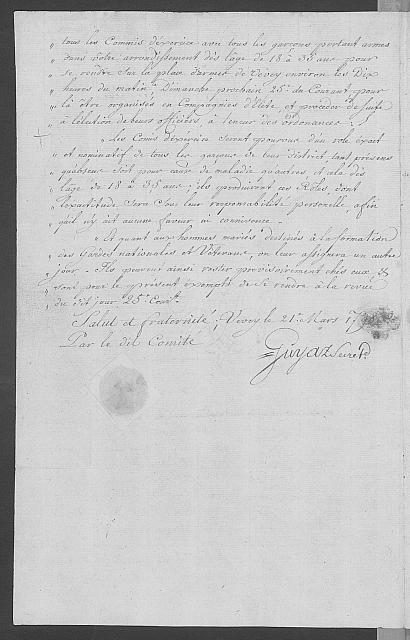 " tous les Commis d'éxercice avec tous les garçons portant armes
" dans votre arrondissement dès l'age de 18 à 35 ans pour
" se rendre Sur la place d'armes de Vevey environ les Dix
" heures du matin, Dimanche prochain 25e. du Courant pour
" là être organisés en Compagnies d'Elite, et procéder de suite
" à l'élection de leurs officiers, à teneur des ordonances ;
" Les Comis d'éxercice seront pourvus d'un role éxact
" et nominatif de tous les garçons de leur district tant présens
" qu'absens soit pour cause de maladie ou autres, et cela dès
" l'age de 18 à 35 ans ; ils produiront ces Rôles, dont
" l'exactitude sera sous leur responsabilité personelle, afin
" qu'il n'y ait aucune faveur ni connivence.
" Et quant aux hommes mariés destinés à la formation
" des Gardes nationales et Veterans, on leur assignera un autre
" jour. Ils peuvent ainsi rester provisoirement chés eux, &
" sont pour le présent exempts de se rendre à la revue
" du dit jour 25e. Cour.t
Salut et fraternité, Vevey le 21e. Mars 17
Par le dit Comité
Guyaz Secret.